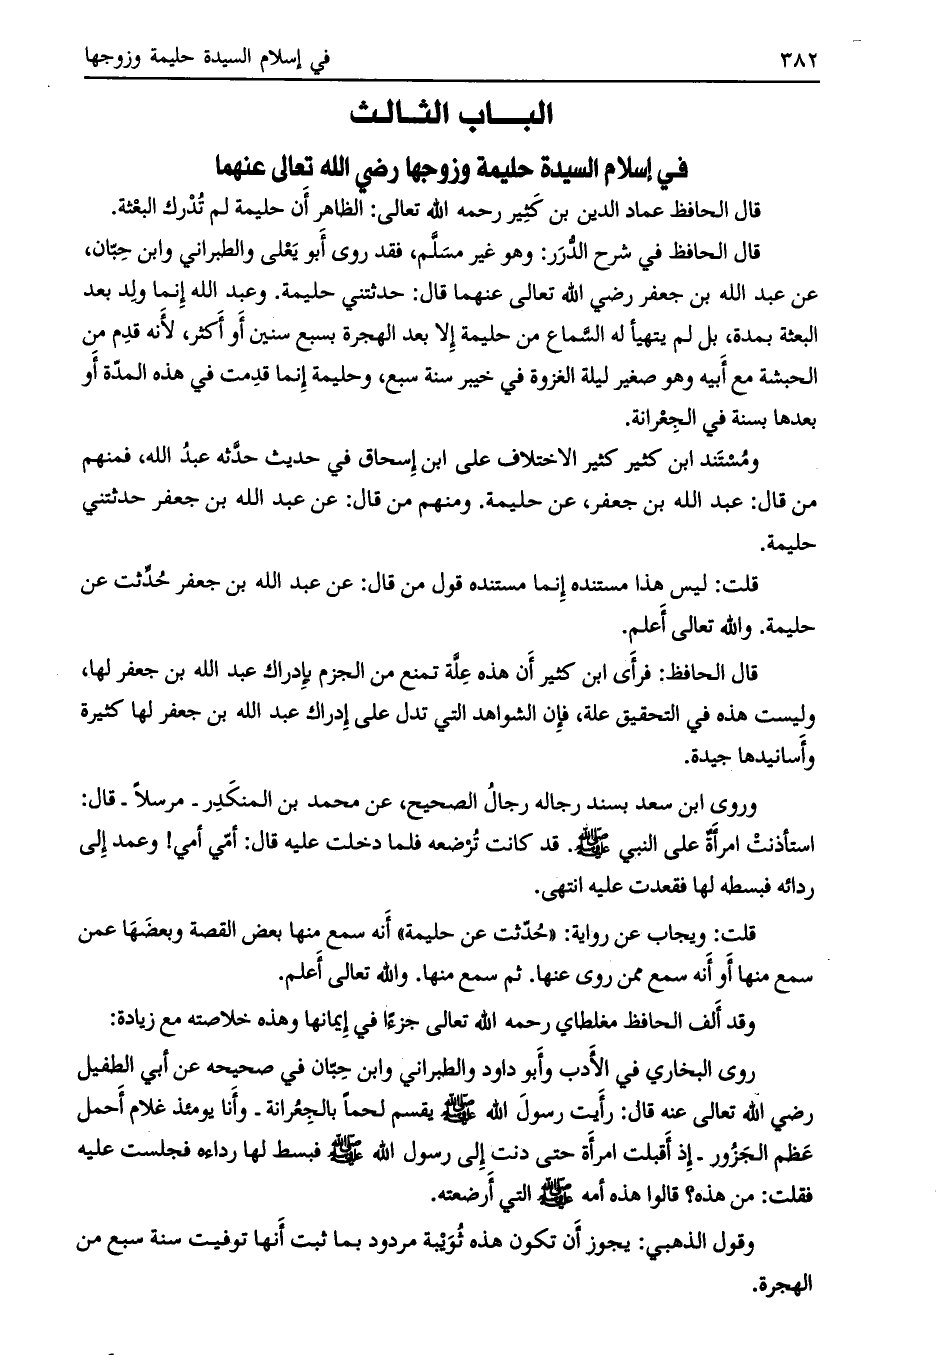 ٣٨٢ في إسلام السيدة حليمة وزوجها
البـــاب الثـالـث
في إسلام السيدة حليمة وزوجها رضي الله تعالى عنهما
قال الحافظ عماد الدين بن كَثِير رحمه الله تعالى: الظاهر أَن حليمة لم تُدْرك البعْثة.
قال الحافظ في شرح الدُّرَر: وهو غير مسَلَّم، فقد روى أَبو يَعْلى والطبراني وابن حِبّان،
عن عبد الله بن جعفر رضي الله تعالى عنهما قال: حدثتني حليمة. وعبد الله إِنما ولِد بعد
البعثة بمدة، بل لم يتهيأ له السَّماع من حليمة إِلا بعد الهجرة بسبع سنين أَو أكثر، لأَنه قدِم من
الحبشة مع أَبيه وهو صغير ليلة الغزوة في خيبر سنة سبع، وحليمة إِنما قدِمت في هذه المدّة أَو
بعدها بسنة في الجِعْرانة.
ومُسْتَند ابن كثير كثير الاختلاف على ابن إِسحاق في حديث حدَّثه عبدُ الله، فمنهم
من قال: عبد الله بن جعفر، عن حليمة. ومنهم من قال: عن عبد الله بن جعفر حدثتني
حليمة.
قلت: ليس هذا مستنده إِنما مستنده قول من قال: عن عبد الله بن جعفر حُدِّثت عن
حليمة. والله تعالى أَعلم.
قال الحافظ: فرأَى ابن كثير أَن هذه عِلَّة تمنع من الجزم بإِدراك عبد الله بن جعفر لها،
وليست هذه في التحقيق علة، فإِن الشواهد التي تدل على إِدراك عبد الله بن جعفر لها كثيرة
وأَسانيدها جيدة.
وروى ابن سعد بسند رجاله رجالُ الصحيح، عن محمد بن المنكَدِر ـ مرسلاً ـ قال:
استأذنتْ امرأَةٌ على النبي ﷺ. قد كانت تُرْضعه فلما دخلت عليه قال: أمّي أمي! وعمد إِلى
ردائه فبسطه لها فقعدت عليه انتهى.
قلت: ويجاب عن رواية: «حُدّثت عن حليمة» أَنه سمع منها بعض القصة وبعضَهَا عمن
سمع منها أَو أَنه سمع ممن روى عنها. ثم سمع منها. والله تعالى أَعلم.
وقد أَلف الحافظ مغلطاي رحمه الله تعالى جزءًا في إِيمانها وهذه خلاصته مع زيادة:
روى البخاري في الأَدب وأَبو داود والطبراني وابن حِبّان في صحيحه عن أَبي الطفيل
رضي الله تعالى عنه قال: رأَيت رسولَ الله ﷺ يقسم لحماً بالجِعْرانة ـ وأَنا يومئذ غلام أَحمل
عَظم الجَزُور ـ إِذ أَقبلت امرأَة حتى دنت إِلى رسول الله ﷺ فبسط لها رداءه فجلست عليه
فقلت: من هذه؟ قالوا هذه أمه ﷺ التي أَرضعته.
وقول الذهبي: يجوز أَن تكون هذه ثُوَيْبة مردود بما ثبت أَنها توفيت سنة سبع من
الهجرة.